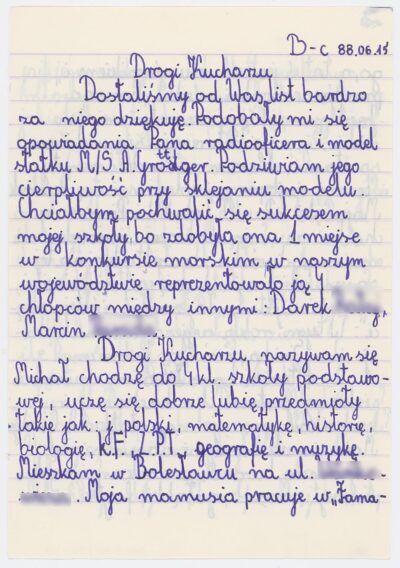 B-c 88.06.15
Drogi Kucharzu
Dostaliśmy od Was list bardzo
za niego dziękuję. Podobały mi się
opowiadania Pana radiooficera i model
statku M/S A. Grottger. Podziwiam jego
cierpliwość przy sklejaniu modelu.
Chciałbym pochwalić się sukcesem
mojej szkoły bo zdobyła ona 1 miejsce
w konkursie morskim w naszym
województwie reprezentowało ją 4
chłopców między innymi: Darek
Marcin
Drogi Kucharzu, nazywam się
Michał chodzę do 4 kl. szkoły podstawo-
wej, uczę się dobrze lubię przedmioty
takie jak: j. polski, matematykę, historę,
biologię, K.F. Z.P.T. geografię i muzykę.
Mieszkam w Bolesławcu na ul.
. Moja mamusia pracuje w „Zama-